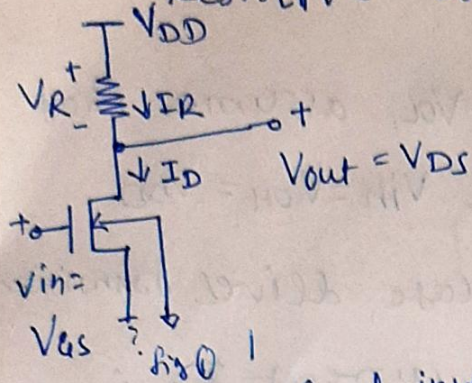 VDD
+
VR
-
↓IR
+
↓ID
Vout = VDS
+
Vin=
VGS
fig ①